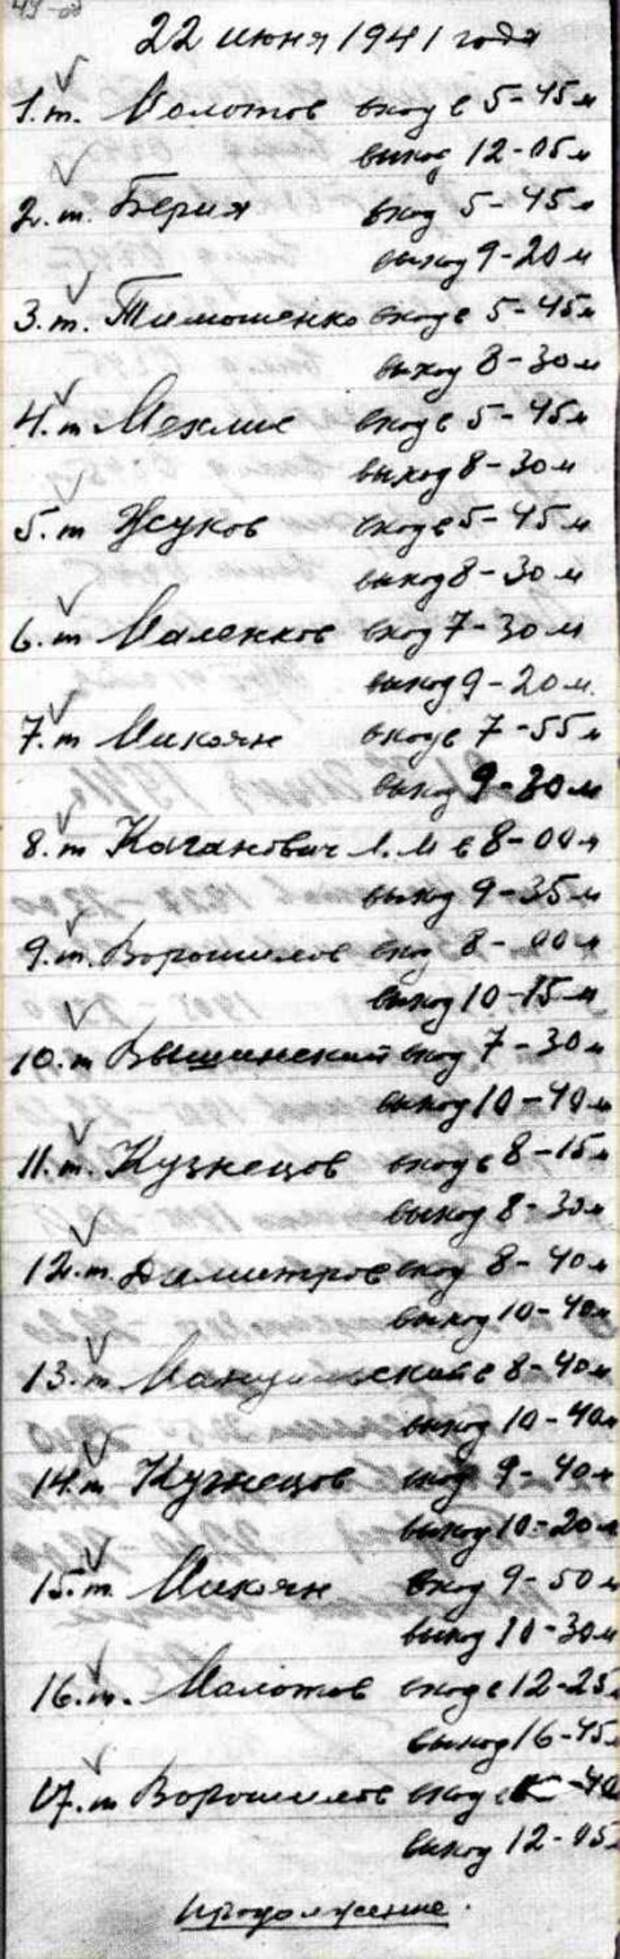 22 июня 1941 года
1. т. Молотов вход в 5-45 м
выход 12-05 м
2. т. Берия вход 5-45 м
выход 9-20 м
3. т. Тимошенко вход в 5-45 м
выход 8-30 м
4. т Мехлис вход в 5-45 м
выход 8-30 м
5. т Жуков вход в 5-45 м
выход 8-30 м
6. т Маленков вход 7-30 м
выход 9-20 м.
7. т Микоян вход в 7-55 м
выход 9-30 м
8. т Каганович Л. М в 8-00 м
выход 9-35 м
9. т. Ворошилов вход 8-00 м
выход 10-15 м
10. т Вышинский вход 7-30 м
выход 10-40 м
11. т. Кузнецов вход в 8-15 м
выход 8-30 м
12. т. Димитров вход 8-40 м
выход 10-40 м
13. т Мануильский в 8-40 м
выход 10-40 м
14. т Кузнецов вход 9-40 м
выход 10-20 м
15. т. Микоян вход 9-50 м
выход 10-30 м
16. т. Молотов вход в 12-25
выход 16-45
17. т Ворошилов вход в -40
выход 12-05
Продолжение.